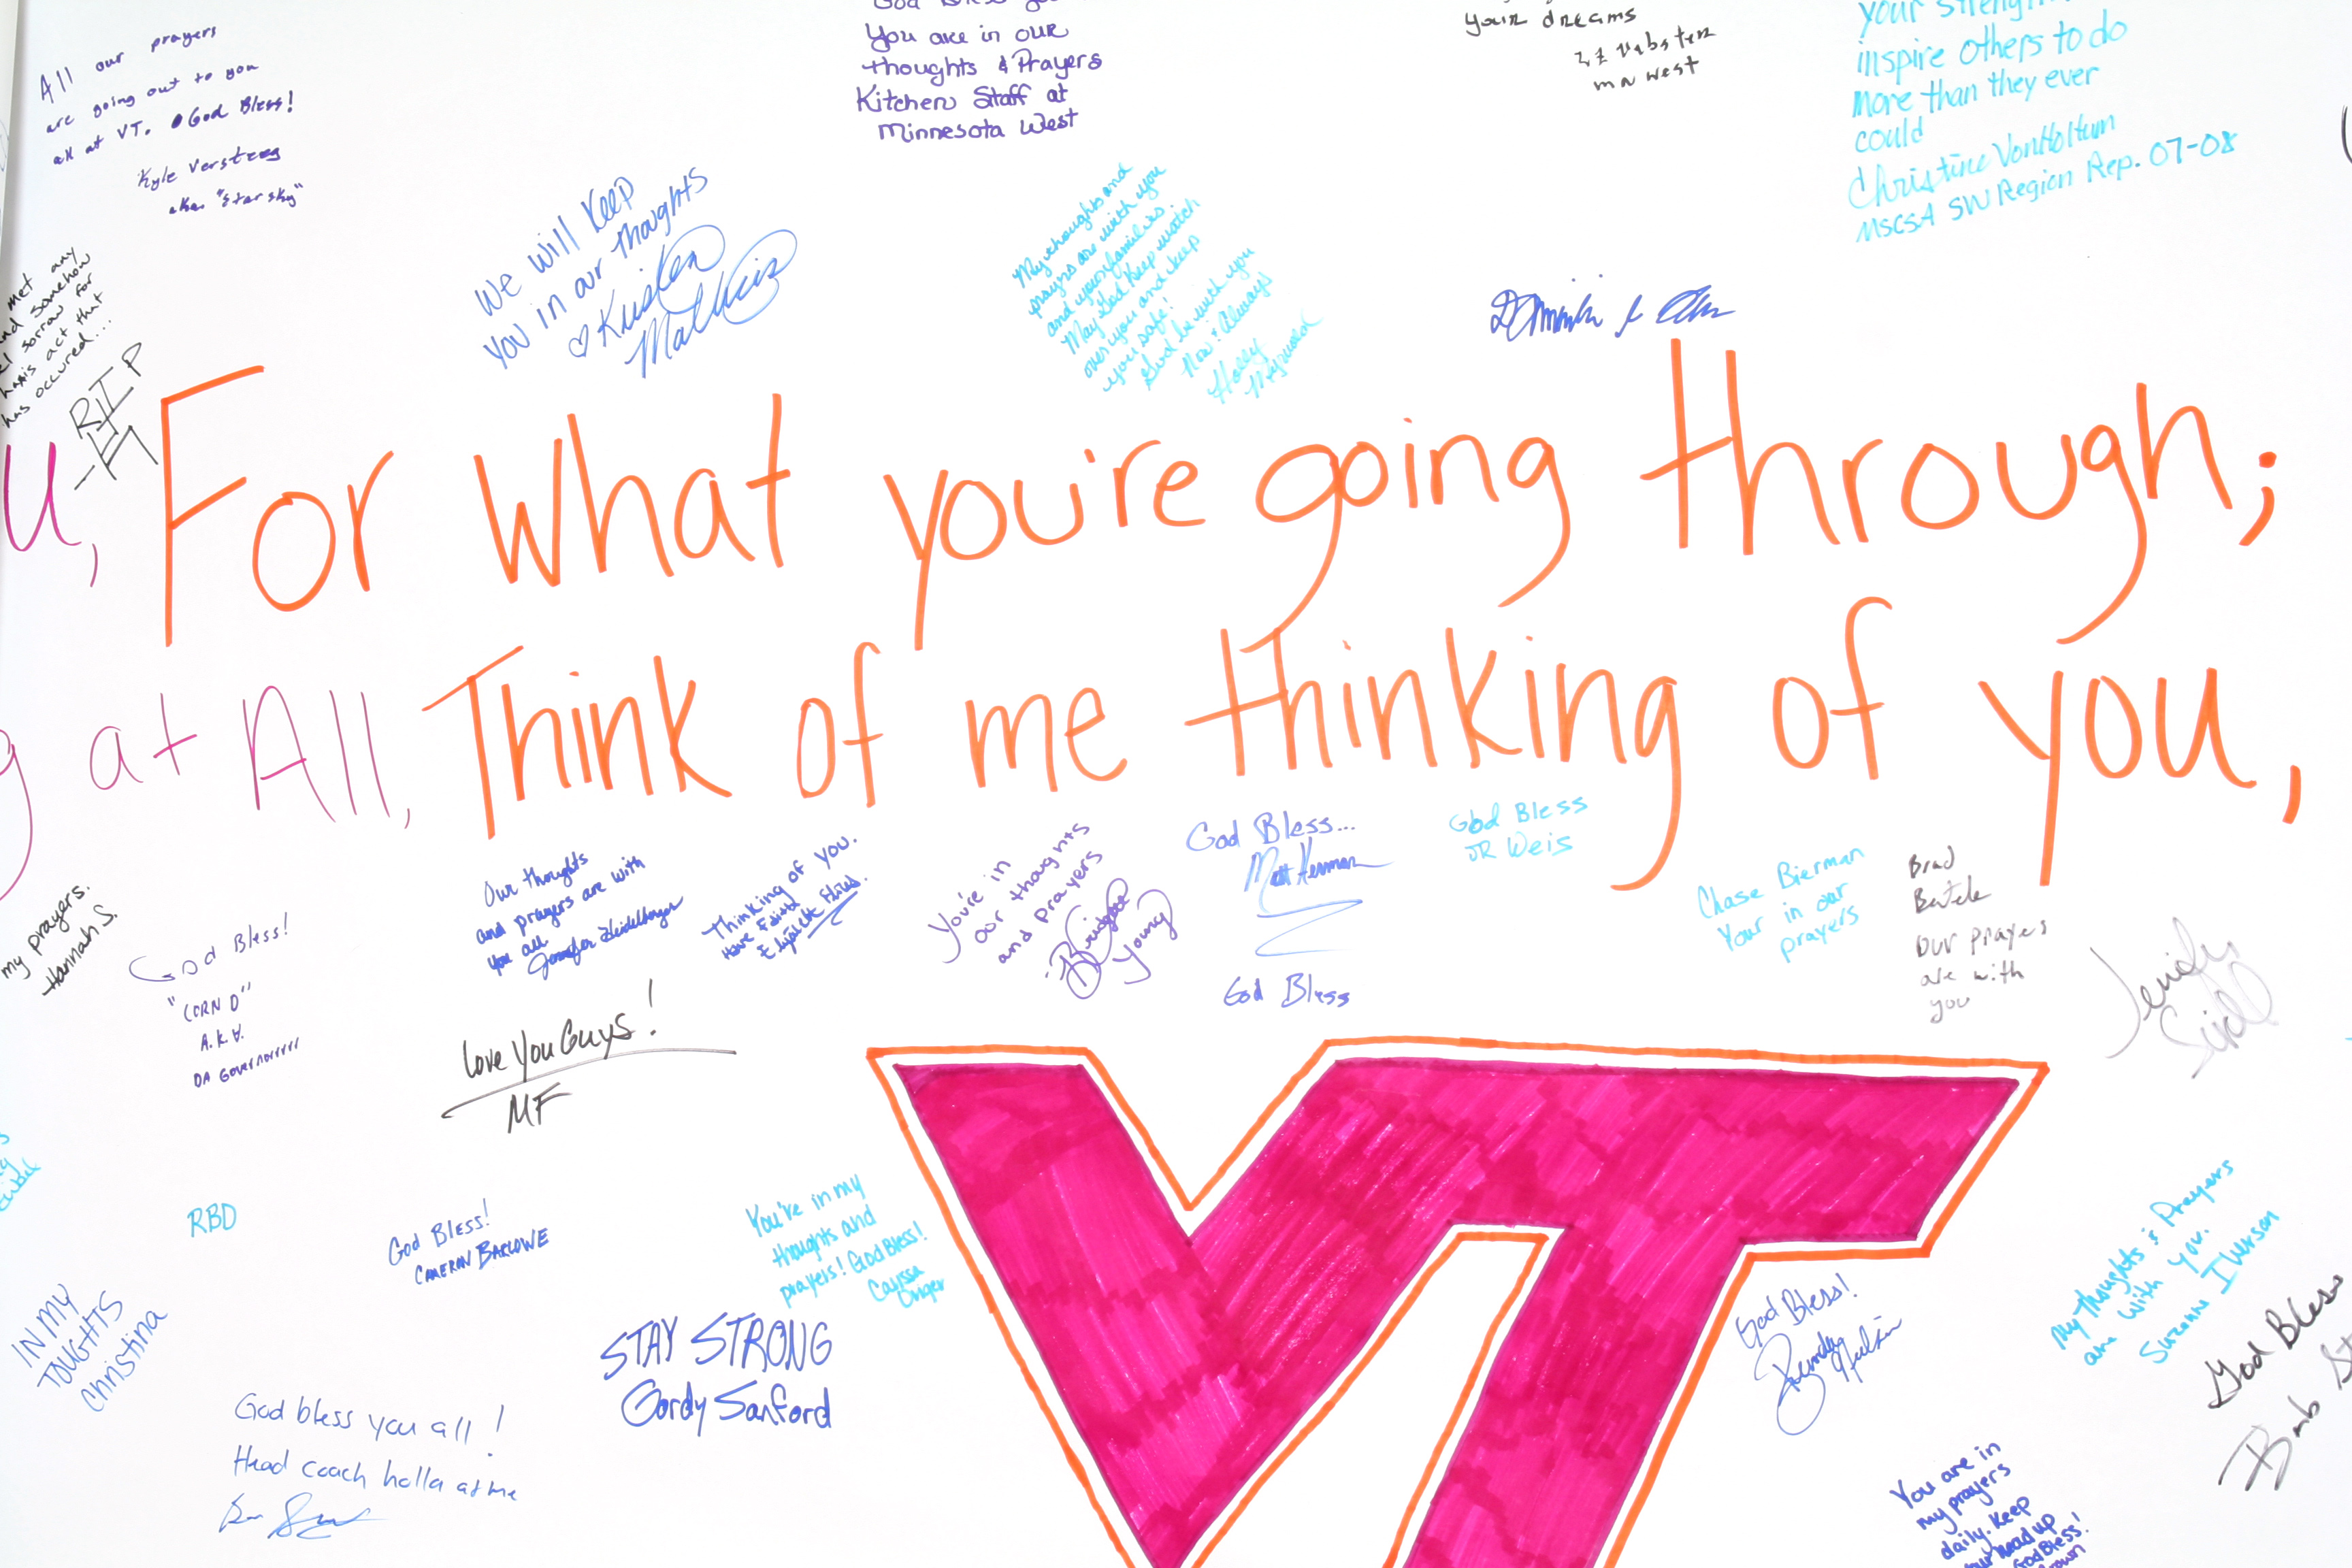 All our prayers
are going out to you
all at VT. God Bless!
Kyle Versteeg
aka "Starsky"
You are in our
thoughts & Prayers
Kitchen Staff at
Minnesota West
your dreams
mn west
your strength
inspire others to do
more than they ever
could
Christine VonHoltum
MSCSA SW Region Rep. 07-08
met any
and somehow
sorrow for
act that
has occured....
RIP
We will keep
you in our thoughts
Kristen
My thoughts and
prayers are with you
and your families
May God keep watch
over you and keep
you safe!
God be with you
Now & Always
Holly
u, For what you're going through;
g at All, Think of me thinking of you,
my prayers.
Hannah S.
God Bless!
"CORN D"
A.K.A.
DA Governorrrrr
Our thoughts
and prayers are with
you all
Jennifer Heidelberger
Thinking of you.
Have Faith
You're in
our thoughts
and prayers
Bridgette
Young
God Bless...
Matt Herman
God Bless
God Bless
JR Weis
Chase Bierman
Your in our
prayers
Brad
our prayers
are with
you
Love You Guys!
MF
VT
RBD
God Bless!
Cameron Barlowe
You're in my
thoughts and
prayers! God Bless!
Carissa
Unger
IN MY
TOUGHTS
Christina
STAY STRONG
Gordy Sanford
God bless you all!
Head coach holla at me
God Bless!
My thoughts & Prayers
are with you.
Suzanne Iverson
God Bless
Barb
You are in
my prayers
daily. Keep
your head up
God Bless!